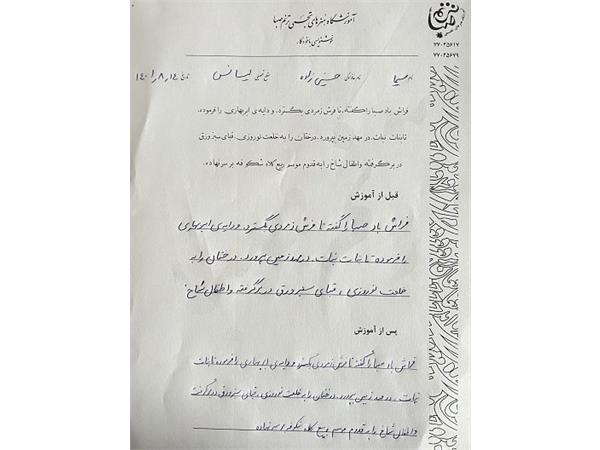 آموزشگاه هنرهای تجسمی ترنم صبا
خوشنویسی با خودکار
۷۷۰۴۵۶۱۷
۷۷۰۴۵۶۷۹
نام سیما نام خانوادگی حسینی زاده سطح تحصیلی لیسانس تاریخ ۱۴۰۱،۸،۱۴
فراش باد صبا را گفته، تا فرش زمردی بگسترد، و دایه ی ابر بهاری را فرموده،
تا بنات نبات، در مهد زمین بپرورد، درختان را به خلعت نوروزی، قبای سبز ورق
در بر گرفته و اطفال شاخ را به قدوم موسم ربیع کلاه شکوفه بر سر نهاده.
قبل از آموزش
فراش باد صبا را گفته تا فرش زمردی بگسترد. و دایه ی ابر بهاری
را فرموده تا بنات نبات. در مهد زمین بپرورد. درختان را به
خلعت نوروزی، قبای سبز ورق در بر گرفته و اطفال شاخ.
پس از آموزش
فراش باد صبا را گفته تا فرش زمردی بگسترد و دایه ی ابر بهاری را فرموده تا بنات
نبات، در مهد زمین بپرورد. درختان را به خلعت نوروزی، قبای سبز ورق در بر گرفت
و اطفال شاخ را به قدوم موسم ربیع کلاه شکوفه بر سر نهاده